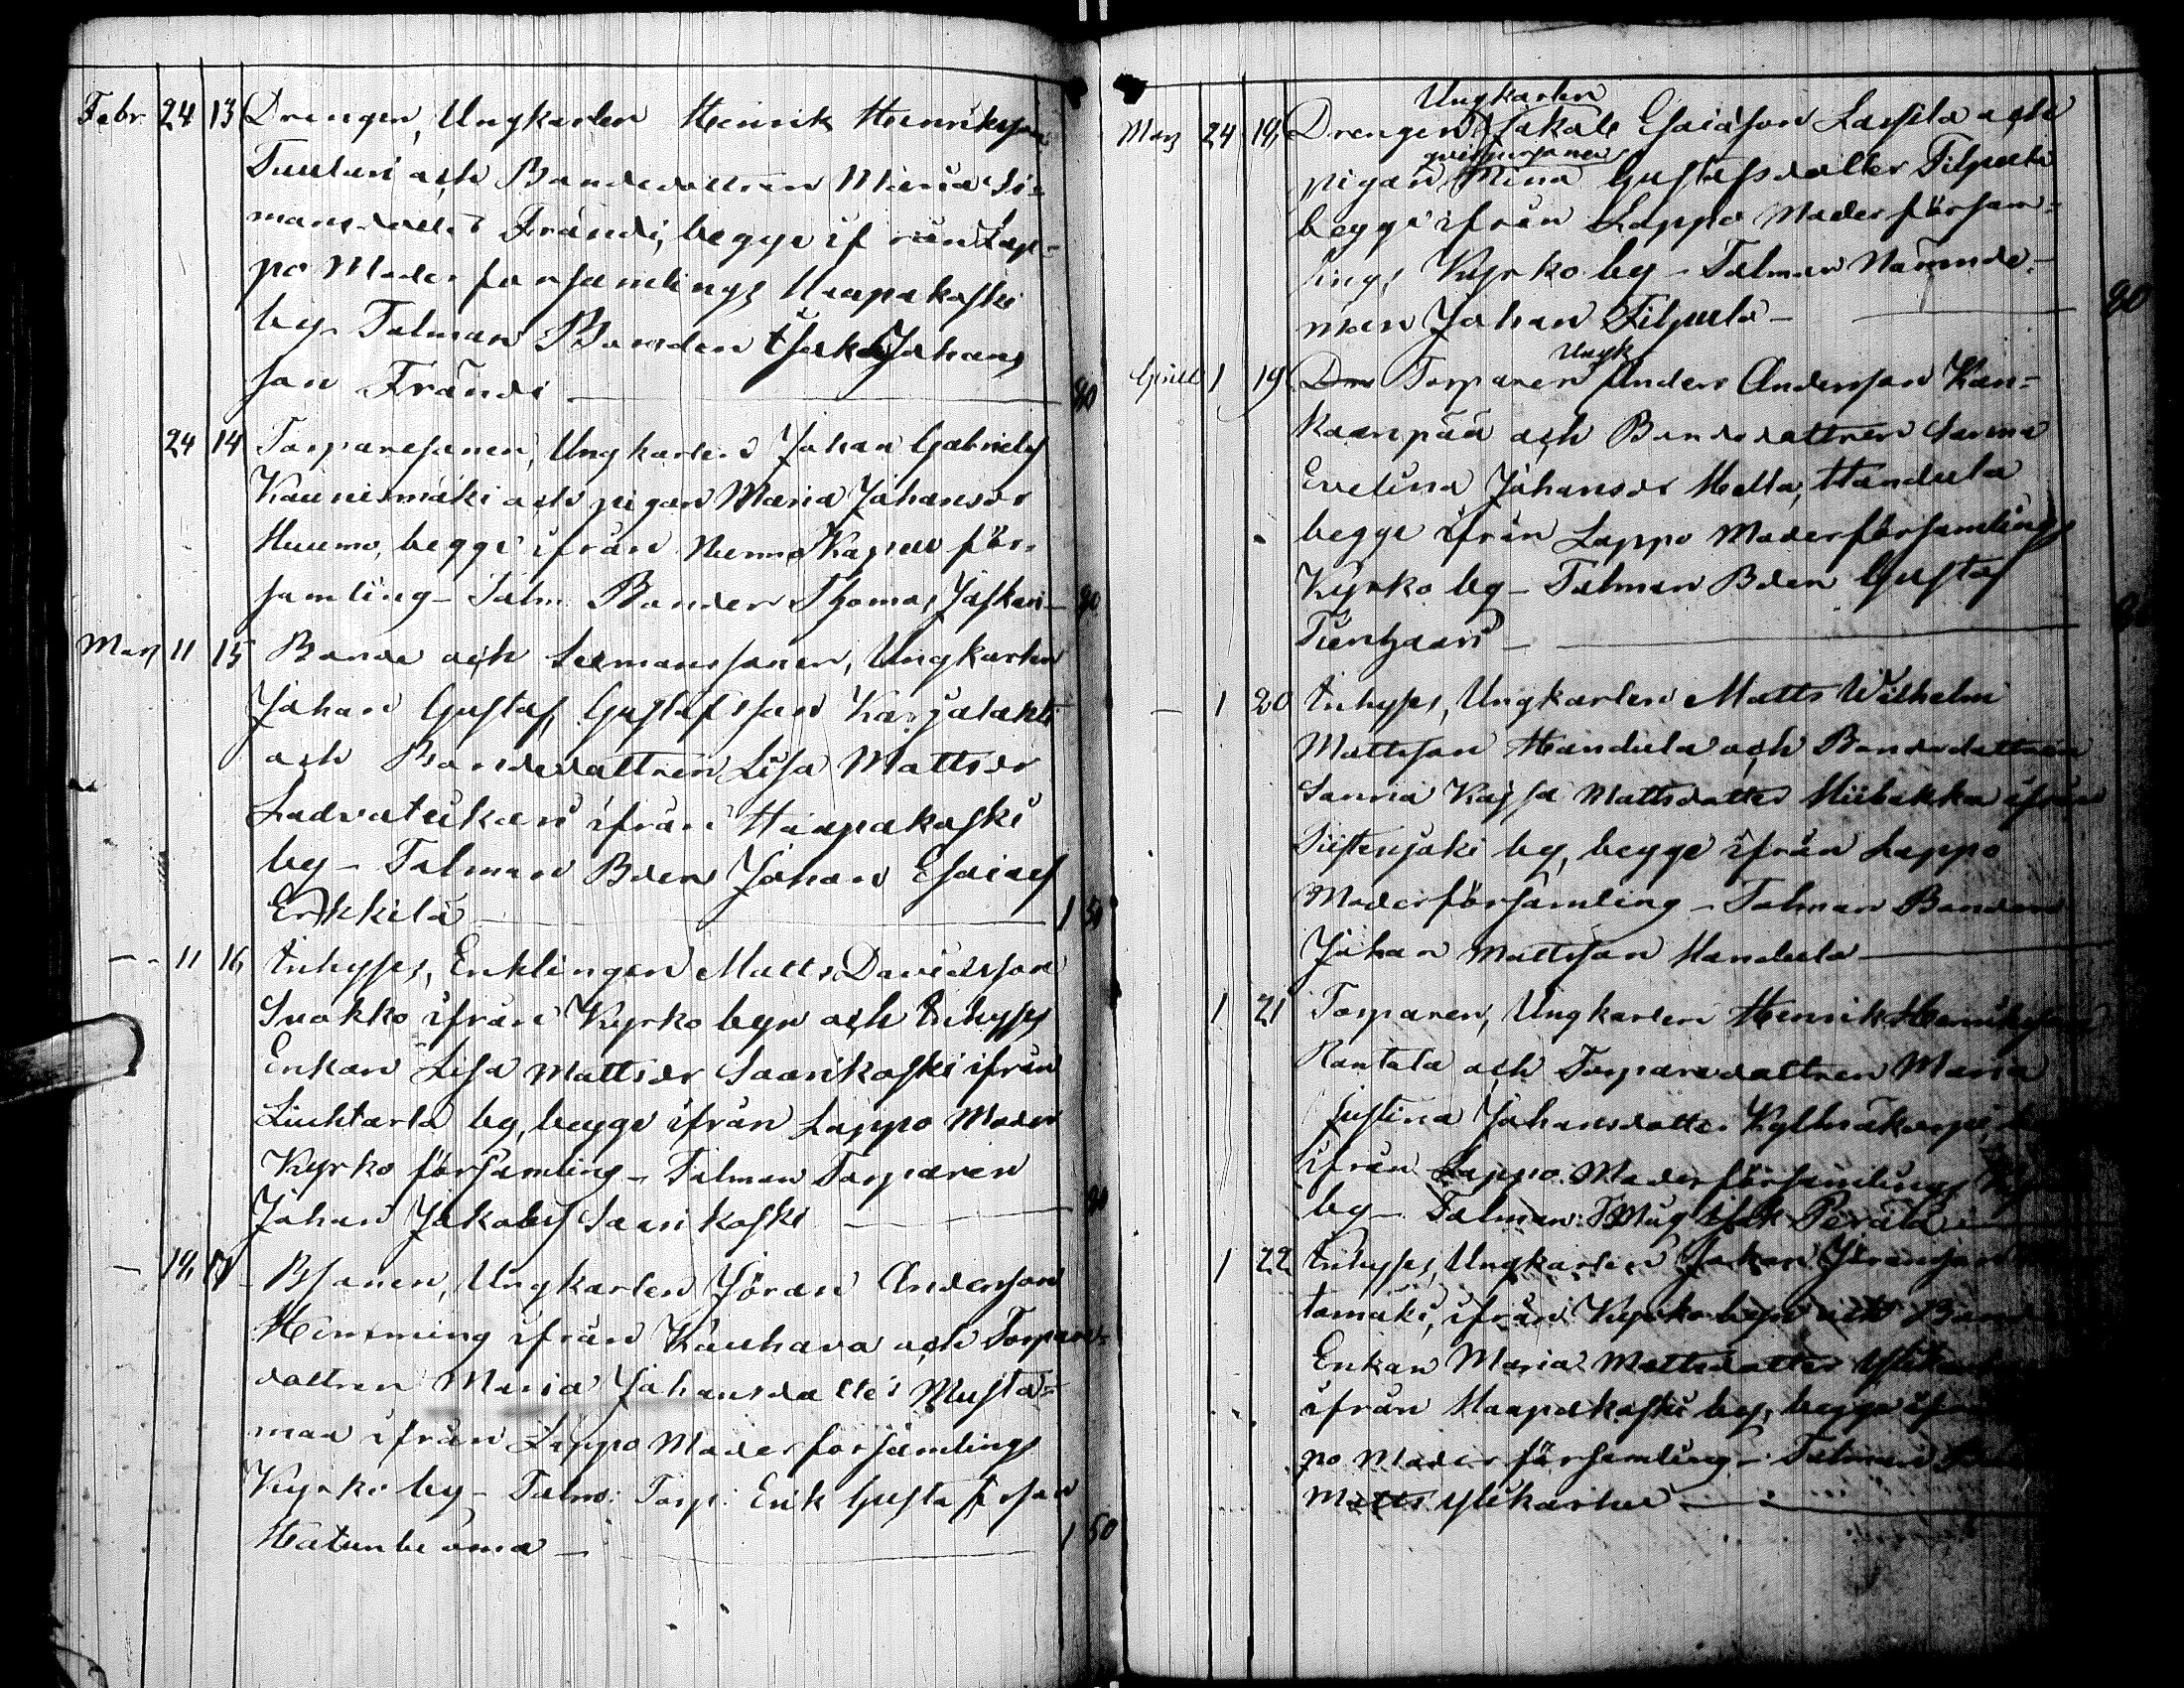 Febr 24 13 Drengen, Ungkarlen Henrik Henriksson
Tuuluri och Bondedottren Maria Si=
mansdotter Frändi, begge ifrån Lap=
po Moderförsamlings Haapakoski
by – Talman Bonden Isak Johans
son Frändi – 80
24 14 Torparesonen, Ungkarlen Johan Gabriels
Kaunismäki och pigan Maria Johansdr
Huumo, begge ifrån Nurmo Kapell för=
samling – Talm Bonden Thomas – 80
Mars 11 15 Bonde och Sexmanssonen, Ungkarlen
Johan Gustaf Gustafsson Karjalahti
och Bondedottren Lisa Mattsdr
Ladvateikari ifrån Haapakoski
by – Talman Bden Johan Esaias
Erkkilä – 1 50
– 11 16 Inhyses, Enklingen Matts Davidsson
Snakko ifrån Kyrkobyn och Inhyses
Enkan Lisa Mattsdr Saarikoski ifrån
Liuhtarla by, begge ifrån Lappo Moder
Kyrko församling – Talman Torparen
Johan Jakobs Saarikoski – 80
– 14, 17 Bsonen, Ungkarlen Jöran Andersson
Hemming ifrån Kauhava och Torpare=
dottren Maria Johansdotter Musta=
maa ifrån Lappo Moderförsamlings
Kyrko by – Talm: Torp: Erik Gustafsson
Hatunluoma – 1 50
Ungkarlen
Mars 24 18, Drengen Jakob Esaiasson Lassila och
pigan Mina Gustafsdotter Filpula
begge ifrån Lappo Moderförsam=
lings Kyrko by – Talman Nämnde=
man Johan Filpula – 80
Ungk
April 1 19 Torparen Anders Andersson Kan=
kaanpää och Bondedottren Sanna
Evelina Johansdr Hella, Handula
begge ifrån Lappo Moderförsamlings
Kyrko by – Talman Bden Gustaf
Tienhaari –
– 1 20 Inhyses, Ungkarlen Matts Wilhelm
Mattsson Handula och Bondedottren
Sanna Kajsa Mattsdotter Hiibakka ifrån
Tiistenjoki by, begge ifrån Lappo
Moderförsamling – Talman Bonden
Johan Mattsson Handula –
1 21 Torparen, Ungkarlen Henrik Henriksson
Rantala och Torparedottren Maria
Justina Johansdotter Kylmäkorpi,
ifrån Lappo Moderförsamlings
by – Talman: Isak Perälä –
1 22 Inhyses, Ungkarlen Johan
tamäki, ifrån Kyrkobyn och
Enkan Maria Mattsdotter
ifrån Haapakoski by, begge
po Moderförsamling – Talman
Matts Ylikarhu –